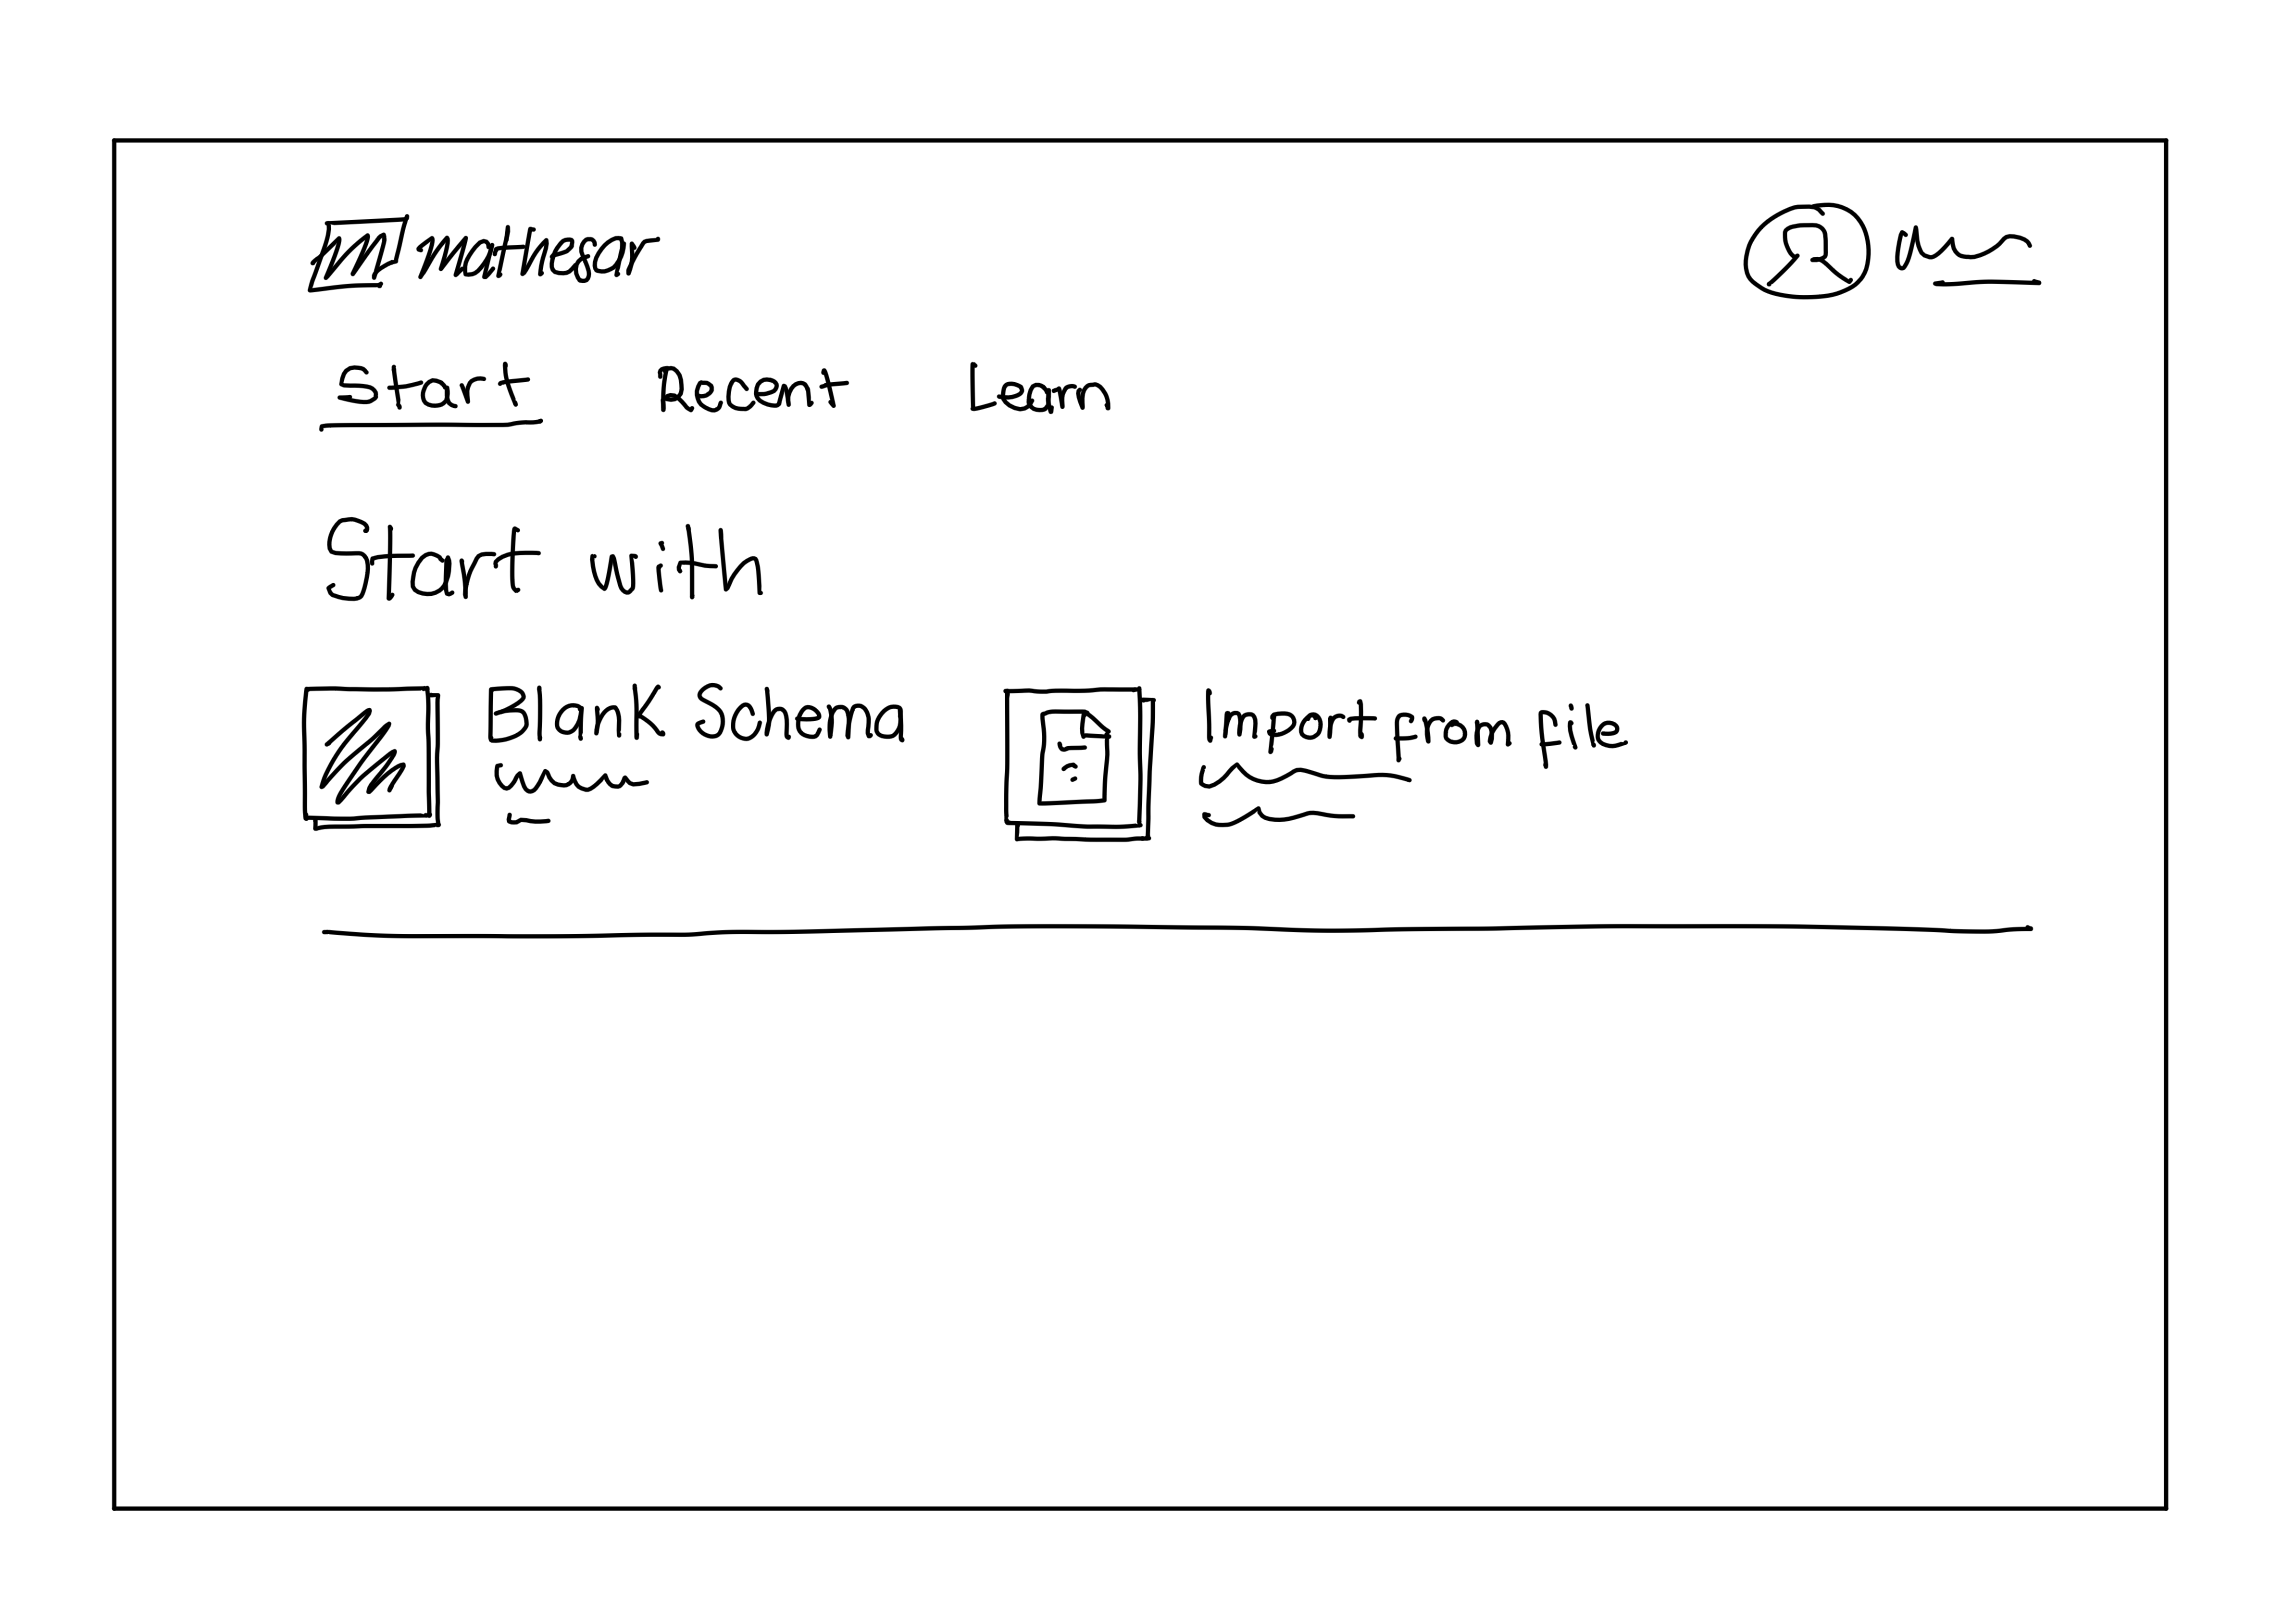 mathesar
Start Recent Learn
Start with
Blank Schema Import from file